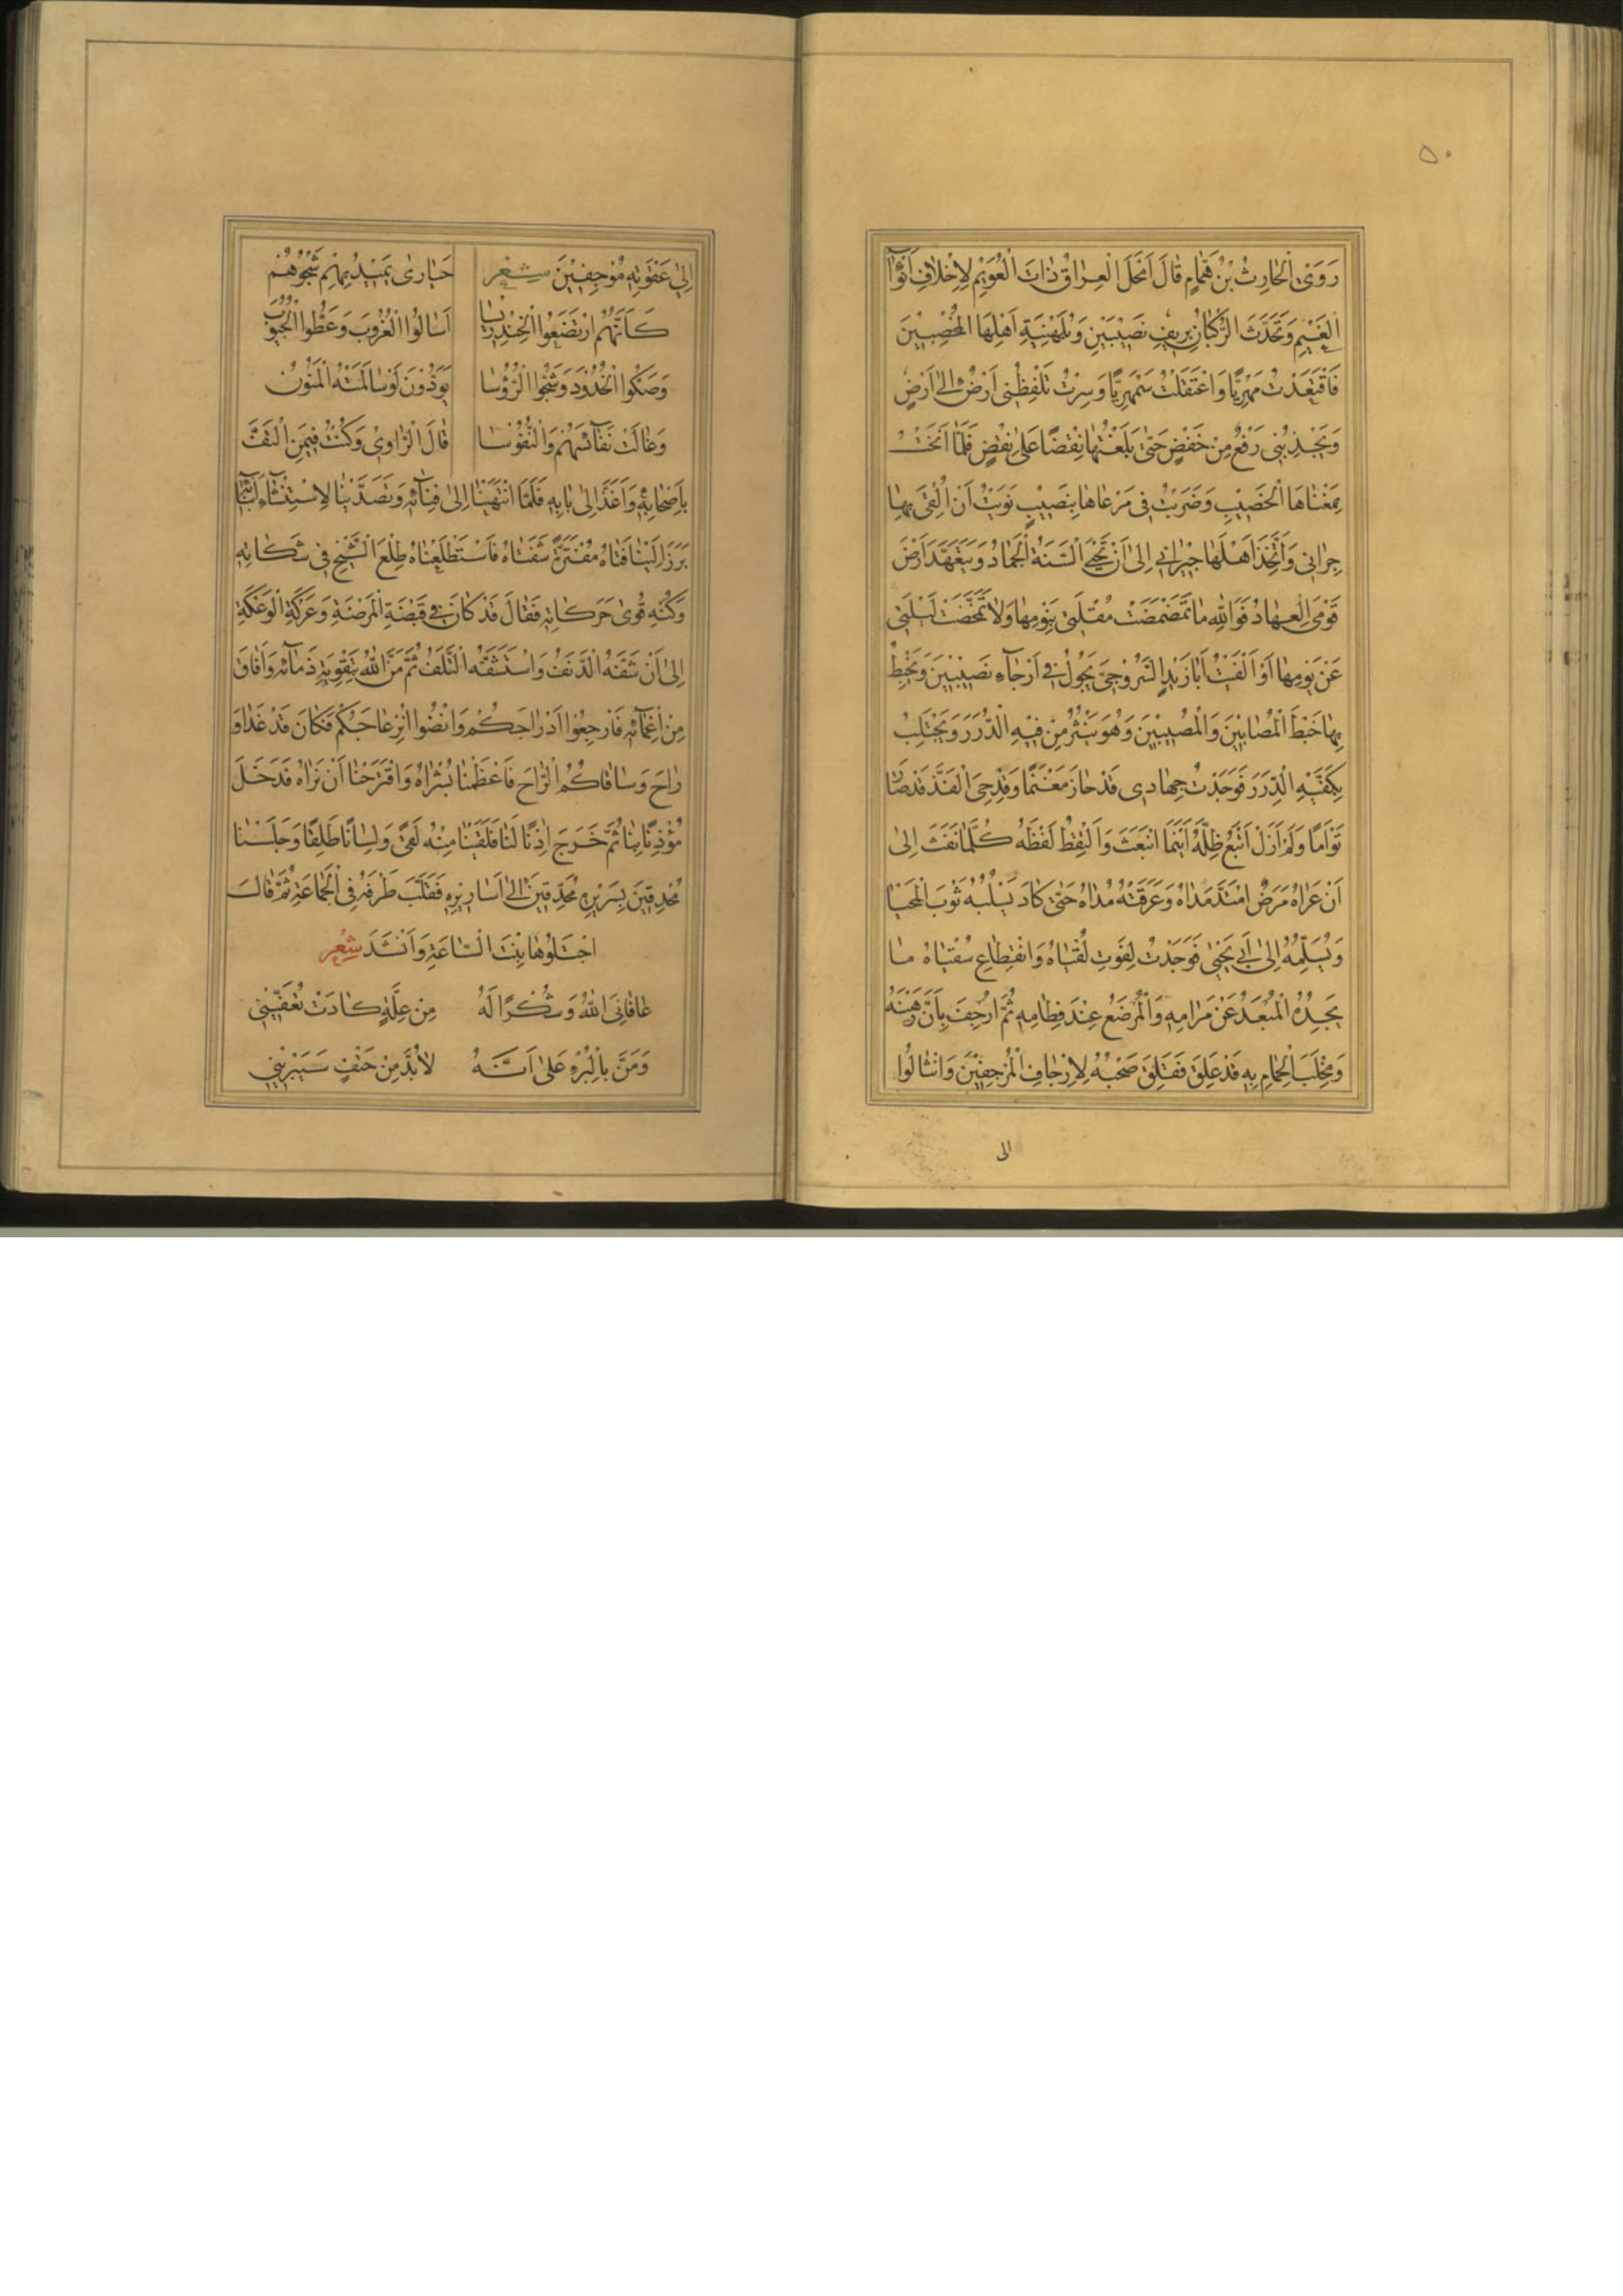 ٥٠
رَوَى الْحَارِثُ بْنُ هَمَّامٍ قَالَ اَمْحَلَ الْعِرَاقُ ذَاتَ الْعُوَيْمِ لِاِخْلَافِ اَنْوَآءِ
الْغَيْمِ وَتَحَدَّثَ الرُّكْبَانُ بِرِيفِ نَصِيبَيْنِ وَبُلَهْنِيَةِ اَهْلِهَا الْمُخْصِبِينَ
فَاقْتَعَدْتُ مَهْرِيًّا وَاعْتَقَلْتُ سَمْهَرِيًّا وَسِرْتُ تَلْفِظُنِى اَرْضٌ اِلَى اَرْضٍ
وَيَجْذِبُنِى رَفْعٌ مِنْ خَفْضٍ حَتَّى بَلَغْتُهَا نِقْضًا عَلَى نِقْضٍ فَلَمَّا اَنَخْتُ
بِمَغْنَاهَا الْخَصِيْبِ وَضَرَبْتُ فِى مَرْعَاهَا بِنَصِيْبٍ نَوَيْتُ اَنْ اُلْقِىَ بِهَا
جِرَانِى وَاَتَّخِذَ اَهْلَهَا جِيْرَانِى اِلَى اَنْ تَحْيَى السَّنَةُ الْجَمَادُ وَيَتَعَهَّدَ اَرْضَ
قَوْمِى الْعِهَادُ فَوَاللهِ مَا تَمَضْمَضَتْ مُقْلَتِى بِنَوْمِهَا وَلَا تَمَخَّضَتْ لَيْلَتِى
عَنْ يَوْمِهَا اَوْ اَلْفَيْتُ اَبَا زَيْدٍ السَّرُوْجِىَّ يَجُولُ فِى اَرْجَآءِ نَصِيْبَيْنِ وَيَخْبِطُ
بِهَا خَبْطَ الْمُصَابِيْنَ وَالْمُصِيْبِيْنَ وَهُوَ يَنْثُرُ مِنْ فِيْهِ الدُّرَرَ وَيَحْتَلِبُ
بِكَفَّيْهِ الدِّرَرَ فَوَجَدْتُ جِهَادِى قَدْ حَازَ مَغْنَمًا وَقِدْحِىَ الْفَذَّ قَدْ صَارَ
تَوْاَمًا وَلَمْ اَزَلْ اَتْبَعُ ظِلَّهُ اَيْنَمَا انْبَعَثَ وَاَلْتَقِطُ لَفْظَهُ كُلَّمَا نَفَثَ اِلَى
اَنْ عَرَاهُ مَرَضٌ امْتَدَّ مَدَاهُ وَعَرَقَتْهُ مُدَاهُ حَتَّى كَادَ يَسْلُبُهُ ثَوْبَ الْمَحْيَا
وَيُسَلِّمُهُ اِلَى اَبِى يَحْيَى فَوَجَدْتُ لِفَوْتِ لُقْيَاهُ وَانْقِطَاعِ سُقْيَاهُ مَا
يَجِدُهُ الْمُبْعَدُ عَنْ مَرَامِهِ وَالْمُرْضَعُ عِنْدَ فِطَامِهِ ثُمَّ اُرْجِفَ بِاَنَّ رَهْنَهُ
وَمِخْلَبَ الْحِمَامِ بِهِ قَدْ عَلِقَ فَقَلِقَ صَحْبُهُ لِاِرْجَافِ الْمُرْجِفِيْنَ وَانْثَالُوا
الى
اِلَى عَقْوَتِهِ مُوْجِفِيْنَ شِعْر حَيَارَى يَمِيْدُ بِهِمْ شَجْوُهُمْ
كَاَنَّهُمْ ارْتَضَعُوا الْخَنْدَرِيْسَا اَسَالُوا الْغُرُوبَ وَعَطُّوا الْجُيُوْبَ
وَصَكُّوا الْخُدُوْدَ وَشَجُّوا الرُّؤُسَا يَوَدُّوْنَ لَوْ سَالَمَتْهُ الْمَنُوْنُ
وَغَالَتْ نَفَآئِسَهُمْ وَالنُّفُوْسَا قَالَ الرَّاوِى وَكُنْتُ فِيْمَنِ الْتَفَّ
بِاَصْحَابِهِ وَاَغَذَّ اِلَى بَابِهِ فَلَمَّا انْتَهَيْنَا اِلَى فِنَآئِهِ وَتَصَدَّيْنَا لِاسْتِنْشَآءِ اَنْبَآئِهِ
بَرَزَ اِلَيْنَا فَتَاهُ مُفْتَرَّةً شَفَتَاهُ فَاسْتَطْلَعْنَاهُ طِلْعَ الشَّيْخِ فِى شَكَاتِهِ
وَكُنْهِ قُوَى حَرَكَاتِهِ فَقَالَ قَدْ كَانَ فِى قَبْضَةِ الْمَرْضَةِ وَعَرْكَةِ الْوَعْكَةِ
اِلَى اَنْ شَفَّهُ الدَّنَفُ وَاسْتَشَفَّهُ التَّلَفُ ثُمَّ مَنَّ اللهُ بِتَقْوِيَةِ ذَمَآئِهِ وَاَفَاقَ
مِنْ اِغْمَآئِهِ فَارْجِعُوْا اَدْرَاجَكُمْ وَانْضُوا انْزِعَاجَكُمْ فَكَاَنْ قَدْ غَدَا وَ
رَاحَ وَسَاقَاكُمُ الرَّاحَ فَاَعْظَمْنَا بُشْرَاهُ وَاقْتَرَحْنَا اَنْ نَرَاهُ فَدَخَلَ
مُؤْذِنًا بِنَا ثُمَّ خَرَجَ اٰذِنًا لَنَا فَلَقِيْنَا مِنْهُ لَقًى وَلِسَانًا طَلِقًا وَجَلَسْنَا
مُحْدِقِيْنَ بِسَرِيْرِهِ مُحَدِّقِيْنَ اِلَى اَسَارِيْرِهِ فَقَلَّبَ طَرْفَهُ فِى الْجَمَاعَةِ ثُمَّ قَالَ
اجْتَلُوْهَا بِنْتَ السَّاعَةِ وَاَنْشَدَ شِعْر
عَافَانِىَ اللهُ وَشُكْرًا لَهُ مِنْ عِلَّةٍ كَادَتْ تُعَفِّيْنِى
وَمَنَّ بِالْبُرْءِ عَلَى اَنَّهُ لَابُدَّ مِنْ حَتْفٍ سَيَبْرِيْنِى